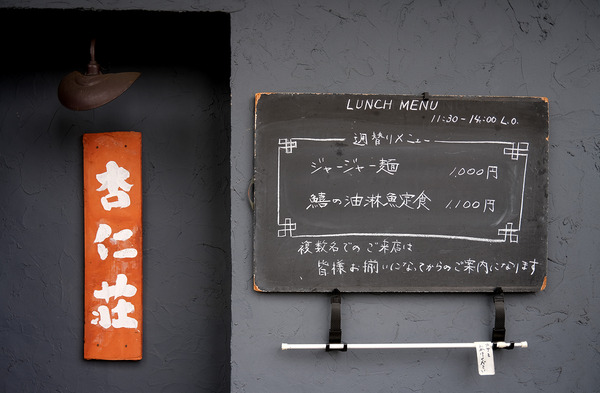 杏仁荘
LUNCH MENU
11:30-14:00 L.O.
週替りメニュー
ジャージャー麺 1,000円
鱚の油淋魚定食 1,100円
複数名でのご来店は
皆様お揃いになってからのご案内になります